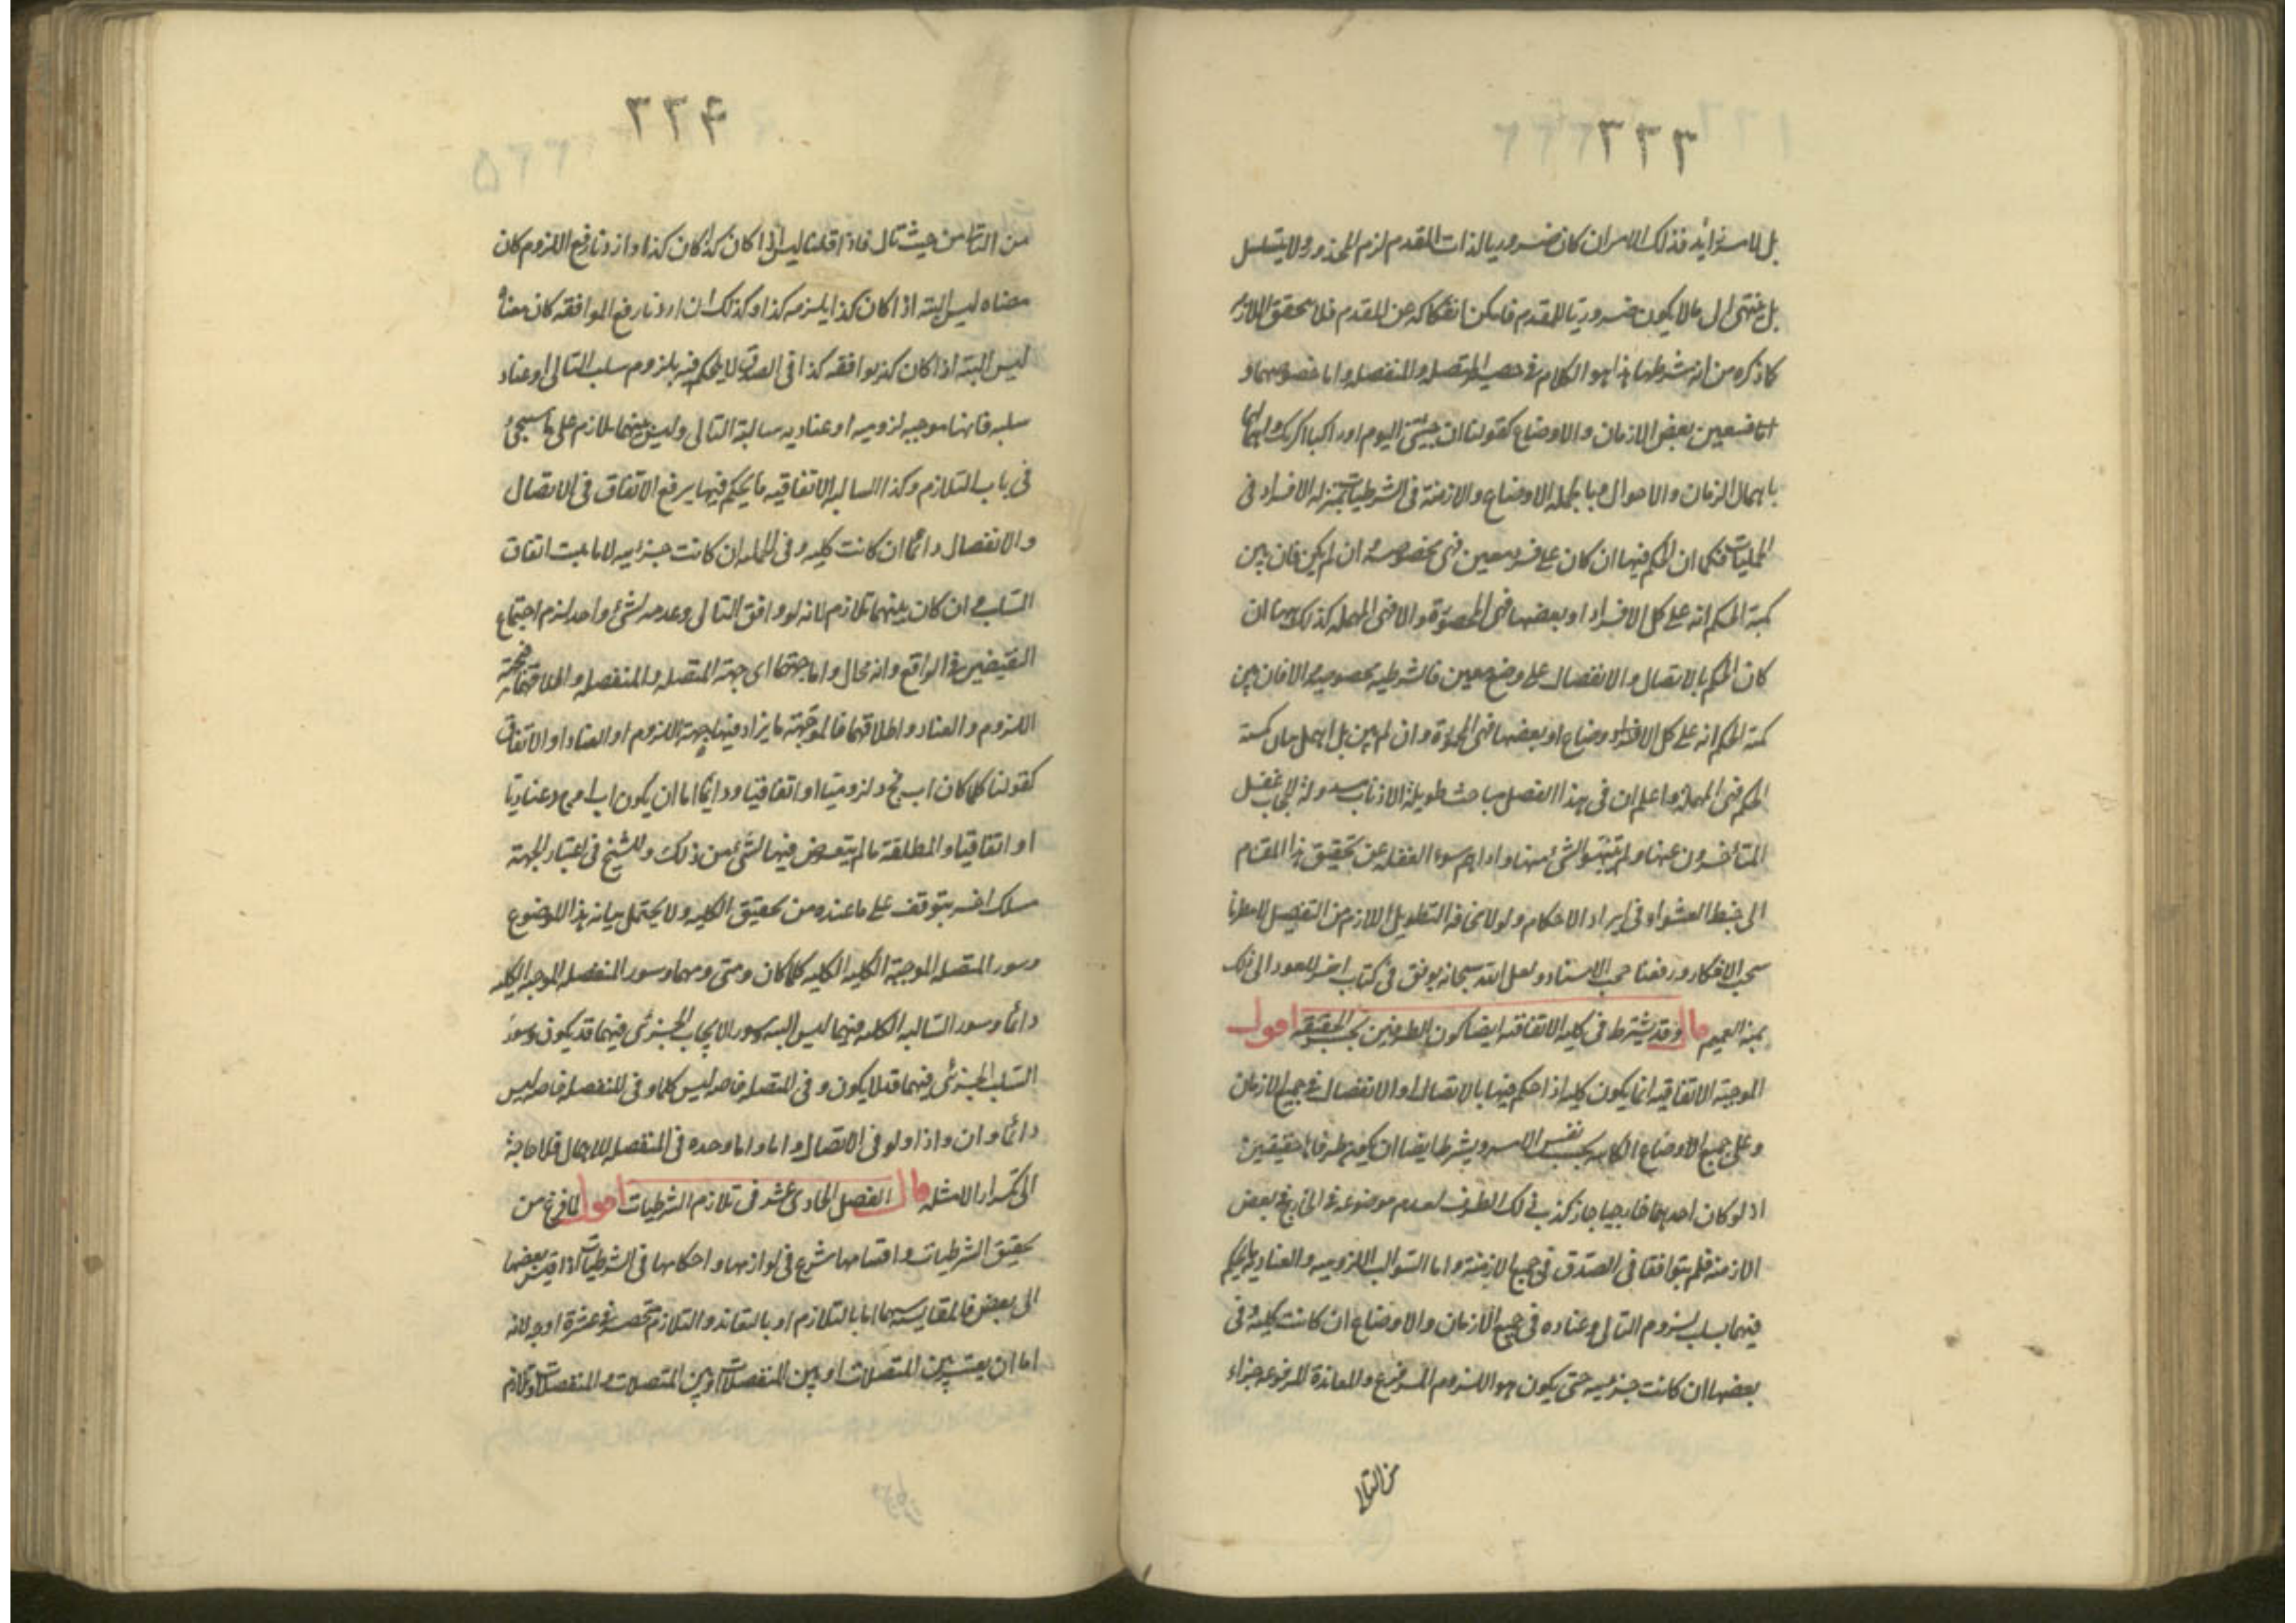 ٣٣٣
بل لامر زائد فذلك الامر ان كان ضروريا لذات المقدم لزم المحذور ولا يتسلسل
بل ينتهى الى ما لا يكون ضروريا للمقدم فامكن انفكاكه عن المقدم فلا يتحقق اللازم
كما ذكره من ان شرطها هذا هو الكلام فى حصر المتصله والمنفصله واما خصوصهما و
فبتعين بعض الازمان والاوضاع كقولنا ان جئتنى اليوم او راكبا اكرمك واهمالها
باهمال الزمان والاحوال وبالجمله الاوضاع والازمنة فى الشرطيات بمنزله الافراد فى
الحمليات فكما ان الحكم فيها ان كان على فرد معين فهى مخصوصه وان لم يكن فان بين
كمية الحكم انه على كل الافراد او بعضها فهى المحصورة والا فهى المهمله كذلك ههنا ان
كان الحكم بالاتصال والانفصال على وضع معين فالشرطيه مخصوصه والا فان بين
كمية الحكم انه على كل الاوضاع او بعضها فهى المحصورة وان لم يبين بل اهمل بيان كمية
الحكم فهى المهملة واعلم ان فى هذا الفصل مباحث طويلة الاذناب غفل
المتأخرون عنها ولم يتنبهوا لشئ منها واداهم سوء الغفله عن تحقيق هذا المقام
الى خبط العشواء فى ايراد الاحكام ولولا مخافة التطويل اللازم من التفصيل لامطرنا
سحب الافكار ورفعنا حجب الاستار ولعل الله سبحانه يوفق فى كتاب اخر للعود الى ذلك
بمنه العميم قال وقد يشترط فى كليه الاتفاقيه ايضا كون الطرفين بحسب الحقيقه اقول
الموجبة الاتفاقيه انما يكون كليه اذا حكم فيها بالاتصال او الانفصال فى جميع الازمان
وعلى جميع الاوضاع الكائنه بحسب نفس الامر ويشترط ايضا ان يكون طرفاها حقيقيين
اذ لو كان احدهما خارجيا جاز كذب ذلك الطرف لعدم موضوعه فى الخارج فى بعض
الازمنه فلم يتوافقا فى الصدق فى جميع الازمنة واما السوالب اللزوميه والعناديه فيحكم
فيهما بسلب لزوم التالى وعناده فى جميع الازمان والاوضاع ان كانت كلية وفى
بعضها ان كانت جزئيه حتى يكون هو اللزوم المرفوع والمعاندة المرفوعه جزاء
من التالى
٣٣٤
من التالى من حيث تال فاذا قلنا ليس اذا كان كذا كان كذا واردنا رفع اللزوم كان
معناه ليس البته اذا كان كذا يلزمه كذا وكذلك ان اردنا رفع الموافقه كان معناه
ليس البته اذا كان كذا يوافقه كذا فى الصدق لا يحكم فيه بلزوم سلب التالى او عناد
سلبه فانها موجبه لزوميه او عناديه سالبة التالى وليس بينهما تلازم على ما سيجئ
فى باب التلازم وكذا السالبه الاتفاقيه ما يحكم فيها برفع الاتفاق فى الاتصال
والانفصال دائما ان كانت كليه وفى الجمله ان كانت جزئيه لا ما يثبت اتفاق
السلب وان كان بينهما تلازم لانه لو وافق التالى وعدمه لشئ واحد لزم اجتماع
النقيضين فى الواقع وانه محال واما جهتهما اى جهة المتصله والمنفصله واطلاقهما فجهة
اللزوم والعناد واطلاقهما فالموجهة ما يزاد فيها جهة اللزوم او العناد او الاتفاق
كقولنا كلما كان اب فج د لزوميا او اتفاقيا ودائما اما ان يكون اب او ج د عناديا
او اتفاقيا والمطلقة ما لم يتعرض فيها لشئ من ذلك وللشيخ فى اعتبار الجهة
مسلك اخر يتوقف على ما عنده من تحقيق الكليه ولا يحتمل بيانه هذا الموضوع
وسور المتصله الموجبة الكليه الكليه كلما كان ومتى ومهما وسور المنفصله الموجبه الكليه
دائما وسور السالبه الكليه فيهما ليس البته وسور الايجاب الجزئى فيهما قد يكون وسور
السلب الجزئى فيهما قد لا يكون وفى المتصله خاصه ليس كلما وفى المنفصله خاصه ليس
دائما وان واذا ولو فى الاتصال واما واما وحده فى المنفصله للاهمال فلا حاجة
الى تكرار الامثله قال الفصل الحادى عشر فى تلازم الشرطيات اقول لما فرغ من
تحقيق الشرطيات واقسامها شرع فى لوازمها واحكامها فى الشرطيات اذا قيس بعضها
الى بعض فالمقايسه اما بالتلازم او بالتعاند والتلازم منحصر فى عشرة اوجه لانه
اما ان يعتبر بين المتصلات او بين المنفصلات او بين المتصلات والمنفصلات